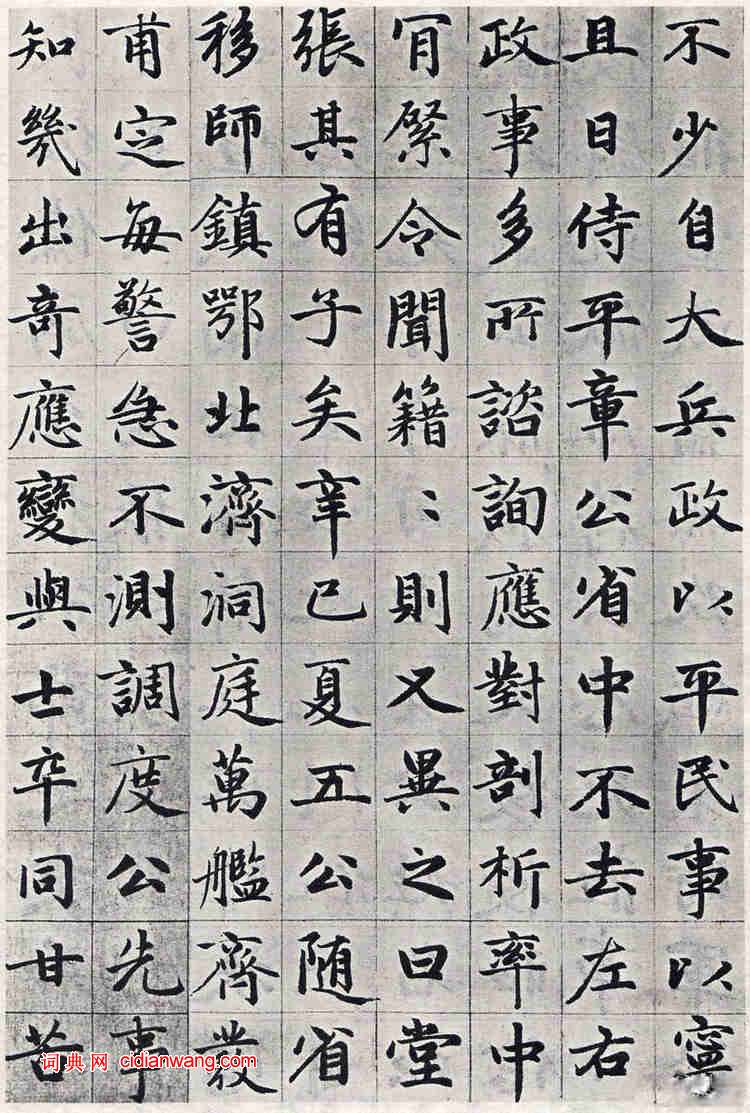 不少自大兵政以平民事以寧
且日侍平章公省中不去左右
政事多所諮詢應對剖析率中
肯綮令聞籍〻則又異之曰堂
張其有子矣辛巳夏五公随省
移師鎮鄂北濟洞庭萬艦齊發
甫定每警急不測調度公先事
知幾出奇應變與士卒同甘苦
词典网 cidianwang.com